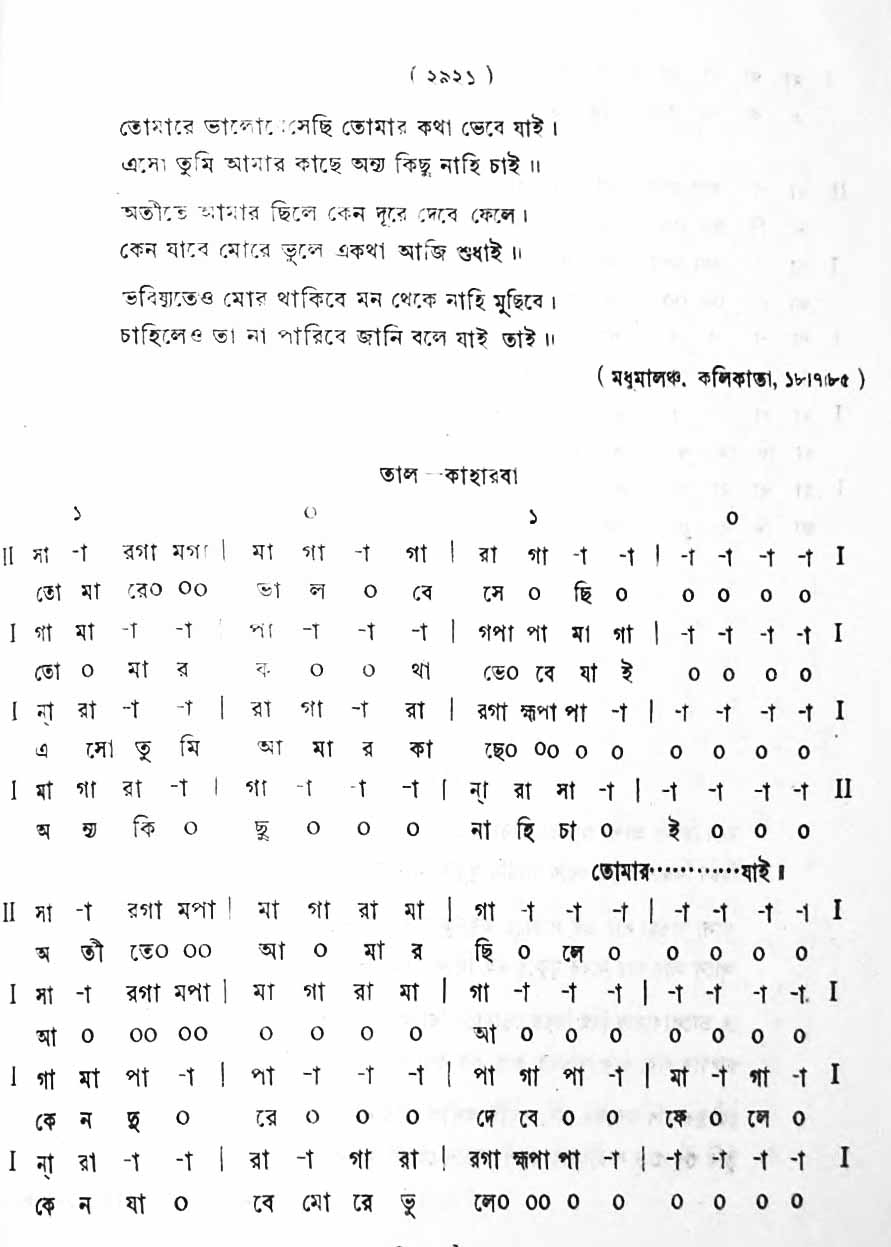 ( ২৯২১ )
তোমারে ভালোবেসেছি তোমার কথা ভেবে যাই।
এসো তুমি আমার কাছে অন্য কিছু নাহি চাই॥
অতীতে আমার ছিলে কেন দূরে দেবে ফেলে।
কেন যাবে মোরে ভুলে একথা আজি শুধাই॥
ভবিষ্যতেও মোর থাকিবে মন থেকে নাহি মুছিবে।
চাহিলেও তা না পারিবে জানি বলে যাই তাই॥
( মধুমালঞ্চ. কলিকাতা, ১৮।৭।৮৫ )
তাল—কাহারবা
১ ০ ১ ০
II সা -া রগা মগা | মা গা -া গা | রা গা -া -া | -া -া -া -া I
তো মা রে০ ০০ ভা ল ০ বে সে ০ ছি ০ ০ ০ ০ ০
I গা মা -া -া | পা -া -া -া | গপা পা মা গা | -া -া -া -া I
তো ০ মা র ক ০ ০ থা ভে০ বে যা ই ০ ০ ০ ০
I ন্‌া রা -া -া | রা গা -া রা | রগা হ্মপা পা -া | -া -া -া -া I
এ সো তু মি আ মা র কা ছে০ ০০ ০ ০ ০ ০ ০ ০
I মা গা রা -া | গা -া -া -া | ন্‌া রা সা -া | -া -া -া -া II
অ ন্য কি ০ ছু ০ ০ ০ না হি চা ০ ই ০ ০ ০
তোমার············যাই॥
II সা -া রগা মপা | মা গা রা মা | গা -া -া -া | -া -া -া -া I
অ তী তে০ ০০ আ ০ মা র ছি ০ লে ০ ০ ০ ০ ০
I সা -া রগা মপা | মা গা রা মা | গা -া -া -া | -া -া -া -া I
আ ০ ০০ ০০ ০ ০ ০ ০ আ ০ ০ ০ ০ ০ ০ ০
I গা মা পা -া | পা -া -া -া | পা গা পা -া | মা -া গা -া I
কে ন দূ ০ রে ০ ০ ০ দে বে ০ ০ ফে ০ লে ০
I ন্‌া রা -া -া | রা -া গা রা | রগা হ্মপা পা -া | -া -া -া -া I
কে ন যা ০ বে মো রে ভু লে০ ০০ ০ ০ ০ ০ ০ ০